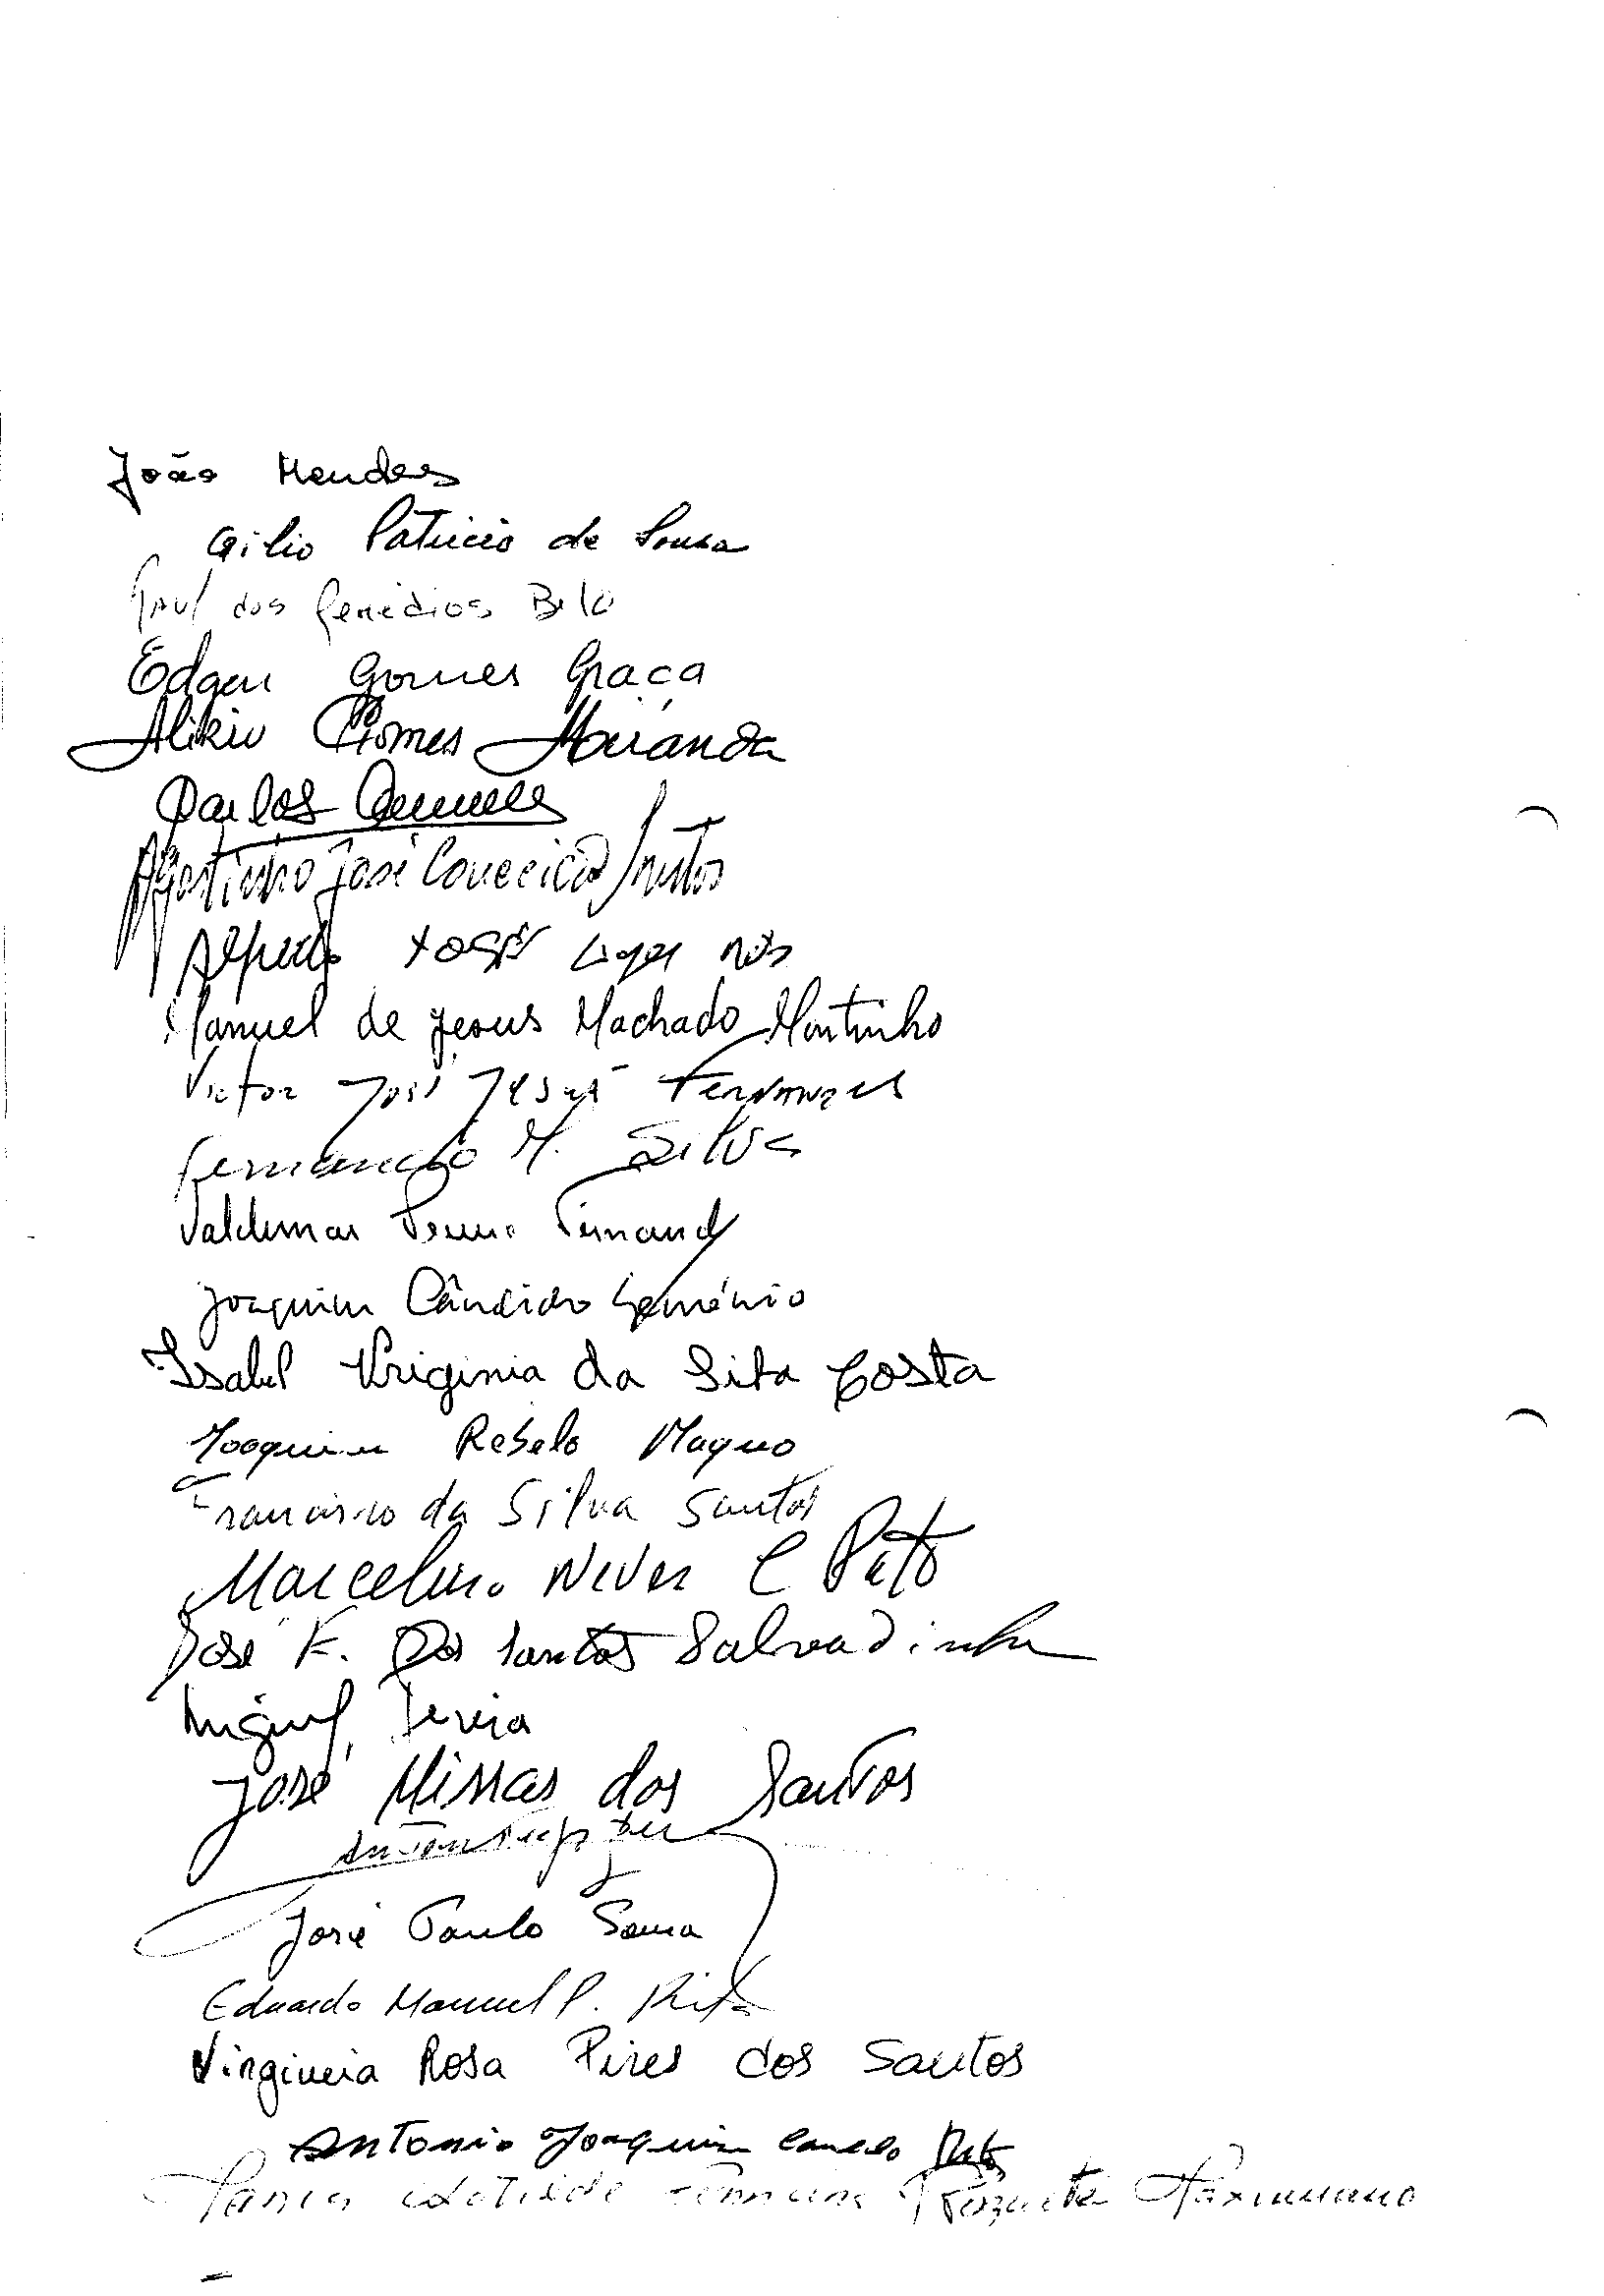 João Mendes
Gilio Patricio de Sousa
dos Remédios Belo
Edgar Gomes Graça
Gomes Miranda
Carlos
Agostinho José Conceição Santos
Alfredo
Manuel de Jesus Machado Moutinho
Victor José Jesus Fernandes
Fernando M. Silva
Valdemar Fernand
Joaquim Cândido Gemónio
Isabel Vriginia da Silva Costa
Joaquim Rebelo Magno
Francisco da Silva Santos
Marcelino Neves C Pato
José F. Dos Santos Salvadinha
Miguel
José Missas dos Santos
José Paulo Sousa
Eduardo Manuel P. Rita
Virginia Rosa Pires dos Santos
Antonio Joaquim Canelo Pato
Maria Clotilde Maximiano